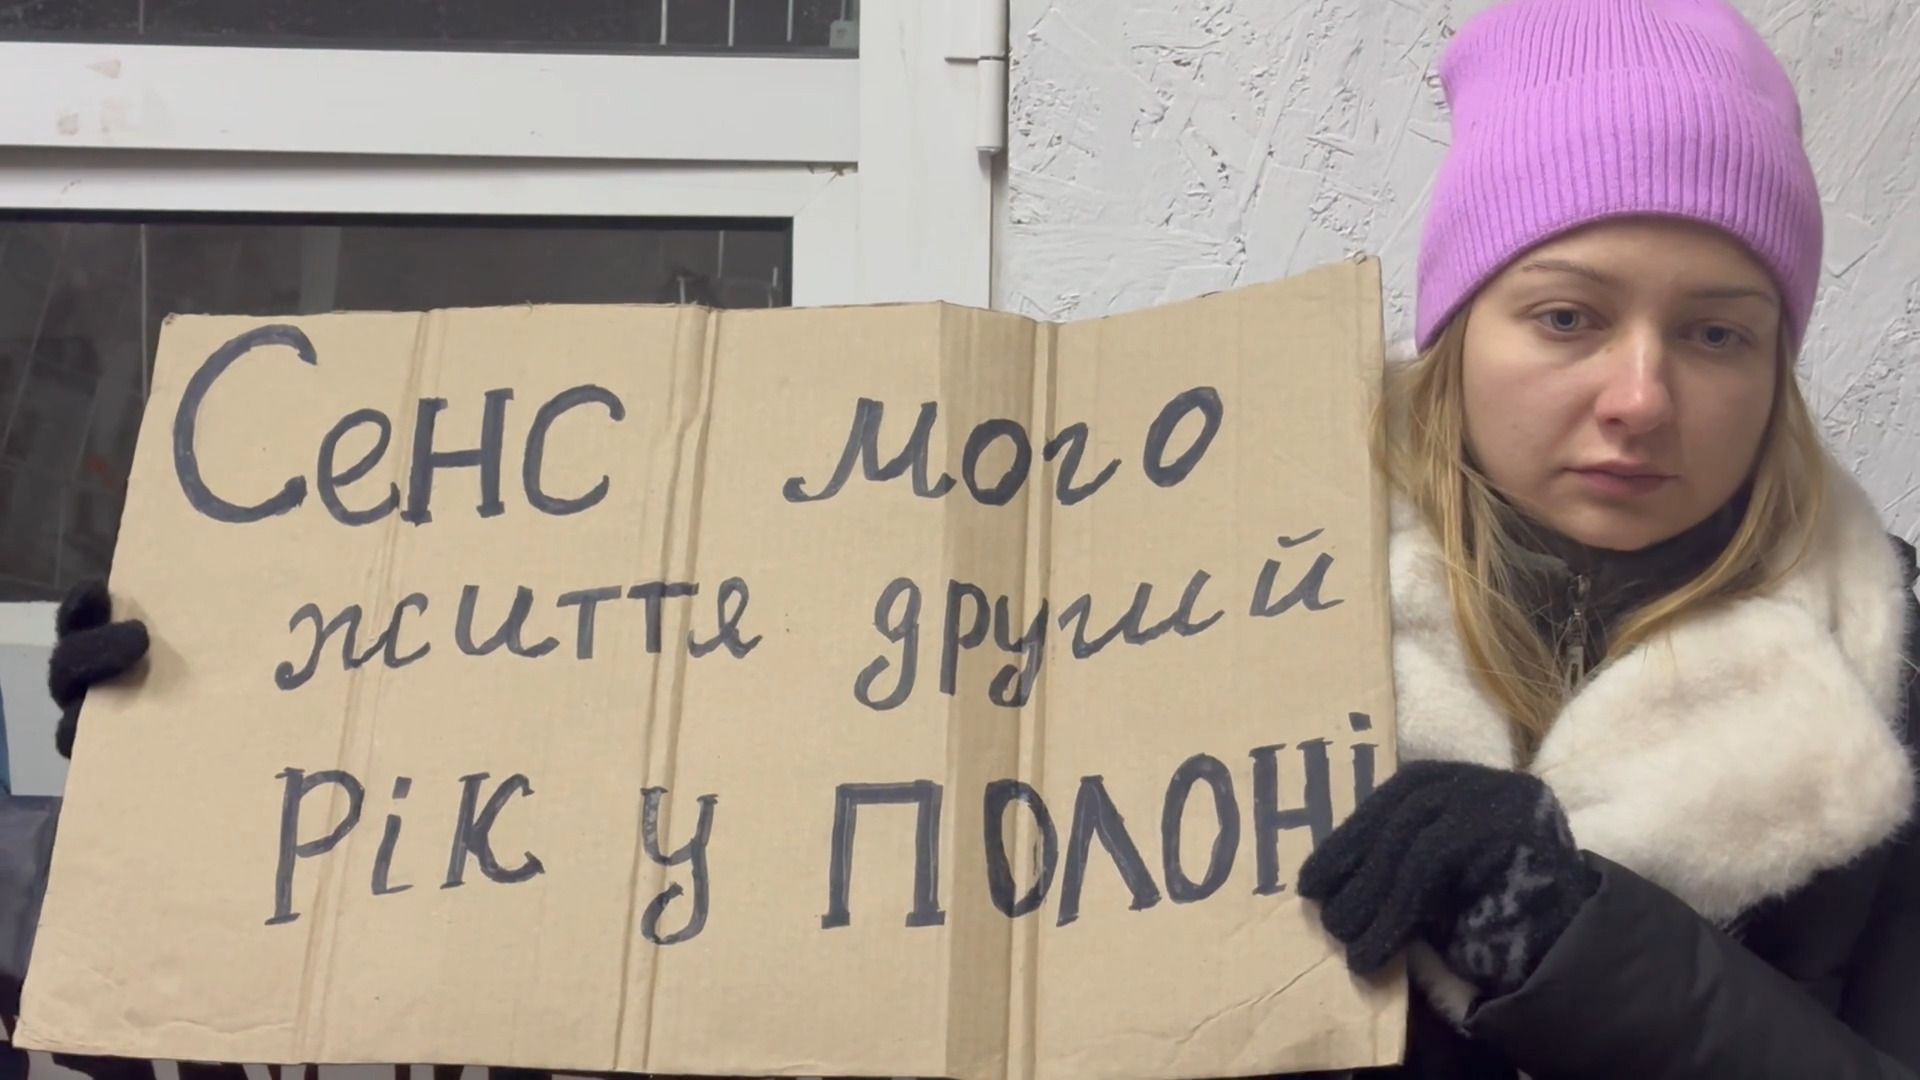 Сенс мого
життя другий
рік у ПОЛОНі